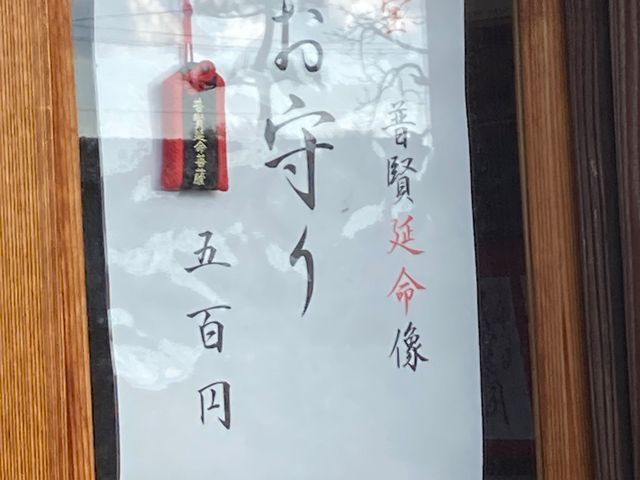 普賢延命像
お守り
五百円
普賢延命菩薩